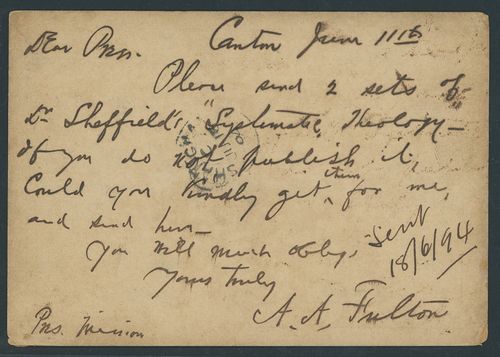 Dear Pres. Canton June 11th
Please send 2 sets of
Dr Sheffield's "Systematic Theology —
If you do not publish it,
Could you kindly get them for me,
and send here —
You will much oblige
Yours truly
A. A. Fulton
Pres. Mission
Sent
18/6/94